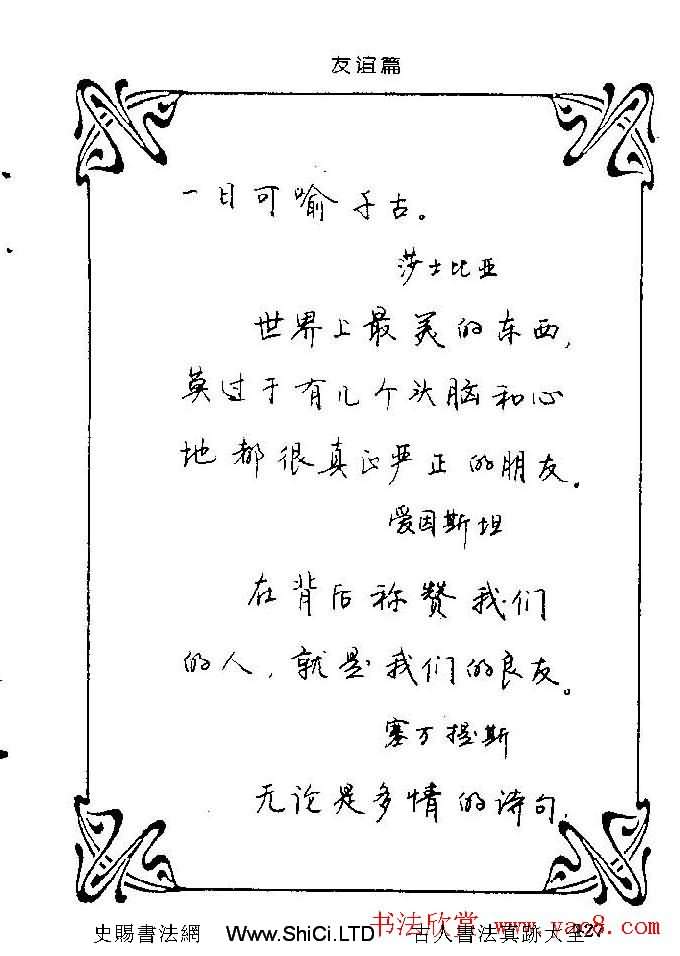 友谊篇
一日可喻千古。
莎士比亚
世界上最美的东西,
莫过于有几个头脑和心
地都很真正严正的朋友.
爱因斯坦
在背后称赞我们
的人,就是我们的良友。
塞万提斯
无论是多情的诗句,
史賜書法網 Www.ShiCi.LTD 古人書法真跡大全
书法欣赏 www.yac8.com
127